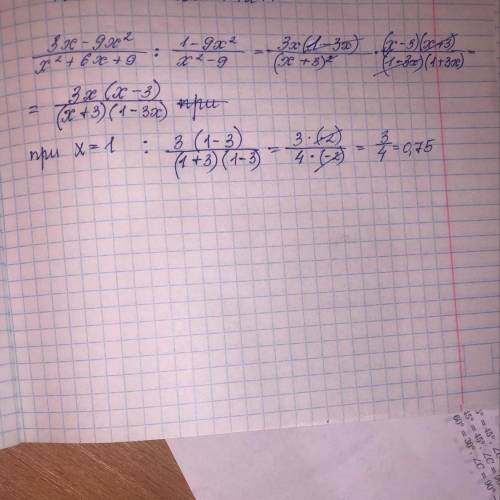 (3x - 9x²)/(x² + 6x + 9) : (1 - 9x²)/(x² - 9) = (3x(1 - 3x))/((x + 3)²) · ((x - 3)(x + 3))/((1 - 3x)(1 + 3x)) =
= (3x(x - 3))/((x + 3)(1 - 3x)) при
при x = 1 : (3(1 - 3))/((1 + 3)(1 - 3)) = (3 · (-2))/(4 · (-2)) = 3/4 = 0,75